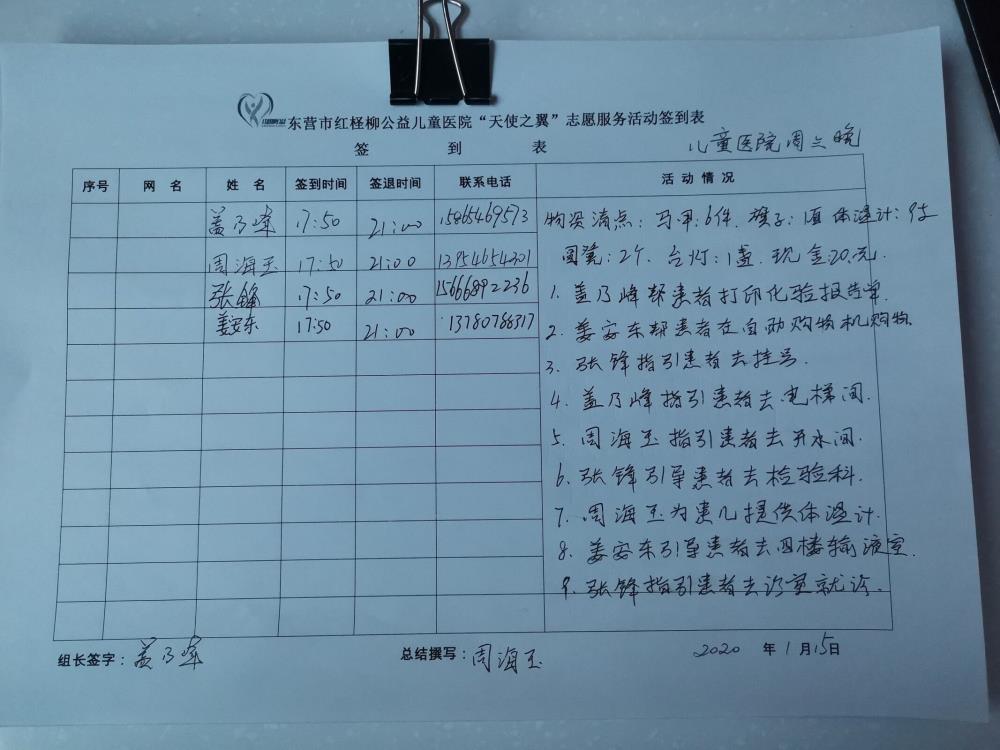 东营市红柽柳公益儿童医院“天使之翼”志愿服务活动签到表
签 到 表
儿童医院周三晚
序号 网名 姓名 签到时间 签退时间 联系电话 活动情况
盖乃峰 17:50 21:00 15865469573
周海玉 17:50 21:00 13954654301
张锋 17:50 21:00 15666892236
姜安东 17:50 21:00 13780786317
物资清点:马甲:6件.旗子:1面 体温计:9支
圆凳:2个.台灯:1盏.现金20元.
1.盖乃峰帮患者打印化验报告单.
2.姜安东帮患者在自助购物机购物.
3.张锋指引患者去挂号.
4.盖乃峰指引患者去电梯间.
5.周海玉指引患者去开水间.
6.张锋引导患者去检验科.
7.周海玉为患儿提供体温计.
8.姜安东引导患者去四楼输液室.
9.张锋指引患者去诊室就诊.
组长签字:盖乃峰 总结撰写:周海玉 2020 年 1月 15日